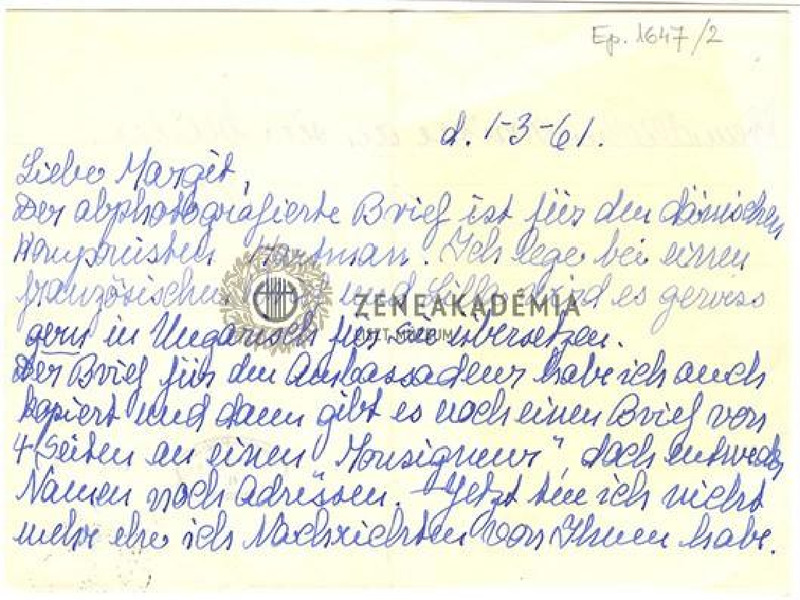 Ep. 1647/2
d. 1-3-61.
Liebe Margit,
Der abphotografierte Brief ist für den dänischen
Komponisten Hartman. Ich lege bei einen
französischen und Lilla wird es gewiss
gern in Ungarisch für Sie übersetzen.
Der Brief für den Ambassadeur habe ich auch
kopiert und dann gibt es noch einen Brief von
4 Seiten an einen "Monsigneur", doch entweder
Namen noch Adressen. – Jetzt tue ich nicht
mehr ehe ich Nachrichten von Ihnen habe.
ZENEAKADÉMIA
LISZT MÚZEUM